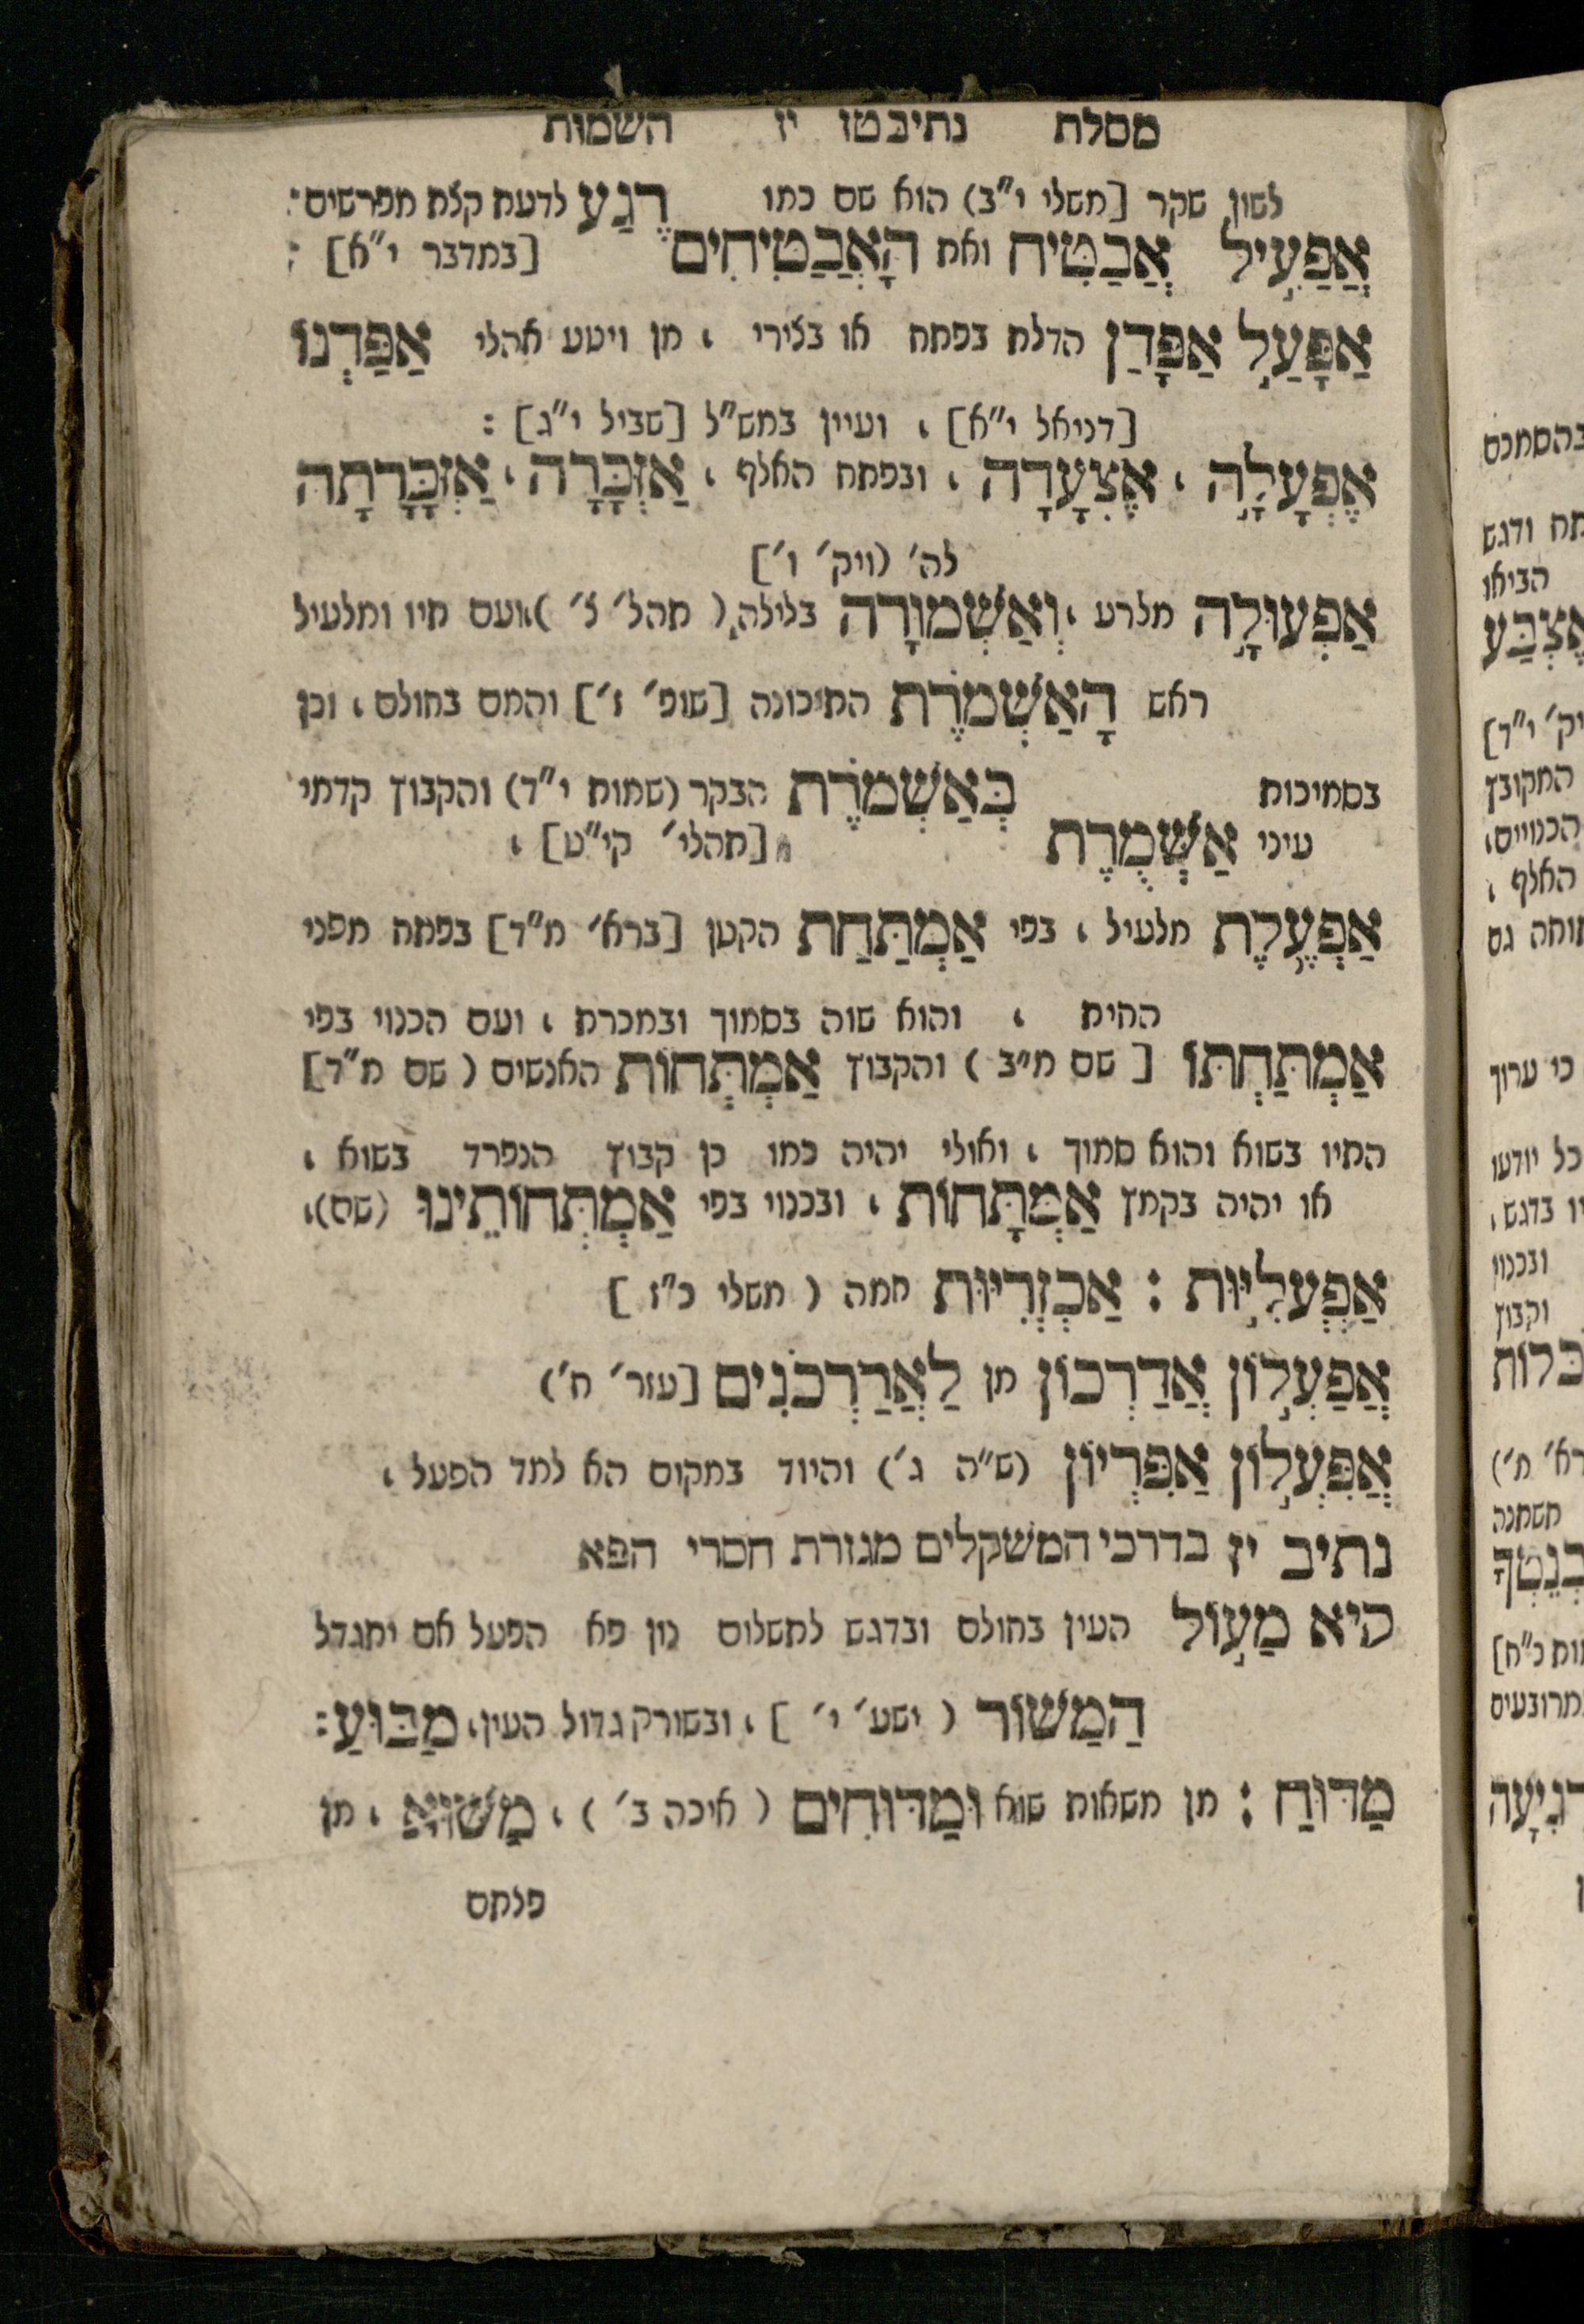 מסלת נתיב טז יז השמות
לשון שקר [משלי י"ב) הוא שם כמו רֶגַע לדעת קצת מפרשים :
אֲפַעִיל אֲבַטִּיח ואת הָאֲבַטִיחִים [במדבר י"א] :
אַפָּעַל אַפָּדַן הדלת בפתח או בצירי , מן ויטע אהלי אַפַּדְנוֹ
[דניאל י"א] , ועיין במש"ל [שביל י"ג] :
אֶפְעָלָה , אֶצְעָדָה , ובפתח האלף , אַזְכָּרָה , אַזְכָּרָתָה
לה' (ויק' ו']
אַפְעוּלָה מלרע , וְאַשְׁמוּרָה בלילה, ( תהל' צ' ) , ועם תיו ומלעיל
ראש הָאַשְׁמֹרֶת התיכונה [שופ' ז'] והמם בחולם , וכן
בסמיכות בְּאַשְׁמֹרֶת הבקר (שמות י"ד) והקבוץ קדמי
עיני אַשְׁמֻרֶת [תהלי' קי"ט] ,
אַפְעֶלֶת מלעיל , בפי אַמְתַּחַת הקטן [ברא' מ"ד] בפתח מפני
החית , והוא שוה בסמוך ובמכרת , ועם הכנוי בפי
אַמְתַּחְתּוֹ [ שם מ"ב ) והקבוץ אַמְתְּחוֹת האנשים ( שם מ"ד]
התיו בשוא והוא סמוך , ואולי יהיה כמו כן קבוץ הנפרד בשוא ,
או יהיה בקמץ אַמְתָּחוֹת , ובכנוי בפי אַמְתְּחוֹתֵינוּ (שם) ,
אַפְעְלִיּוּת : אַכְזְרִיּוּת חמה ( משלי כ"ז ]
אֲפַעְלוֹן אֲדַרְכוֹן מן לַאֲדַרְכֹנִים [עזר' ח')
אֲפִּעְלוֹן אַפִּרְיוֹן (ש"ה ג') והיוד במקום הא למד הפעל ,
נתיב יז בדרכי המשקלים מגזרת חסרי הפא
היא מַעוֹל העין בחולם ובדגש לתשלום נון פא הפעל אם יתגדל
הַמַשׂוֹר ( ישע' י' ] , ובשורק גדול העין , מַבּוּעַ :
מַדּוּחַ : מן משאות שוא וּמַדּוּחִים ( איכה ב' ) , מַשּׁוּא , מן
פלתם
בהסתכם
תח ודגש
הביאו
אֶצְבַּע
יק' י"ד]
המקובץ
הכנויים ,
האלף ,
תוחה גם
כי ערוך
כל יודעו
יו בדגש ,
ובכנוי
וקבוץ
כלות
רא' מ')
משמנה
ות כ"ח]
מרובעים